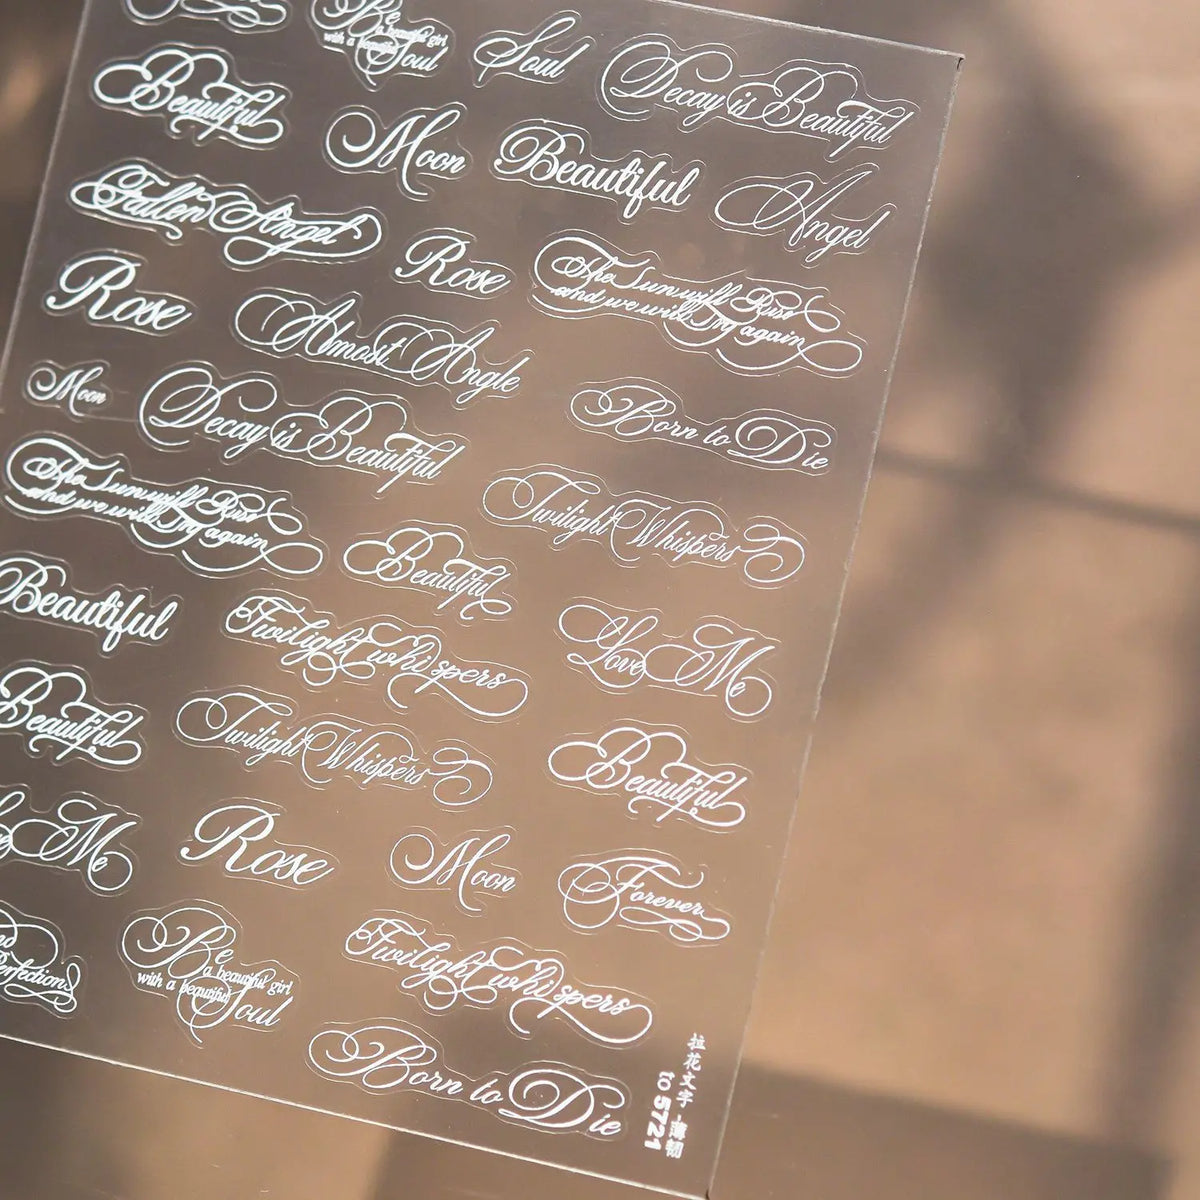 Be
a beautiful girl
with a beautiful
Soul
Soul
Decay is Beautiful
Beautiful
Moon
Beautiful
Angel
Fallen Angel
Rose
The Sun will Rise
and we will Try again
Rose
Almost Angle
Born to Die
Moon
Decay is Beautiful
The Sun will Rise
and we will Try again
Twilight Whispers
Beautiful
Beautiful
Twilight whispers
Love Me
Beautiful
Twilight Whispers
Beautiful
Me
Rose
Moon
Forever
Be
a beautiful girl
with a beautiful
Soul
Twilight whispers
Born to Die
拉花文字-薄韧
to 5721